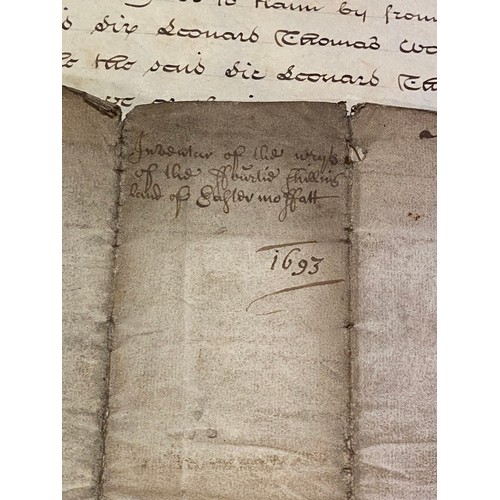 to him by from
Sir Leonard Thomas
the said Sir Leonard Th
Inventar of the wryts
of the ffourtie shilling
land of Eahter moffatt
1693